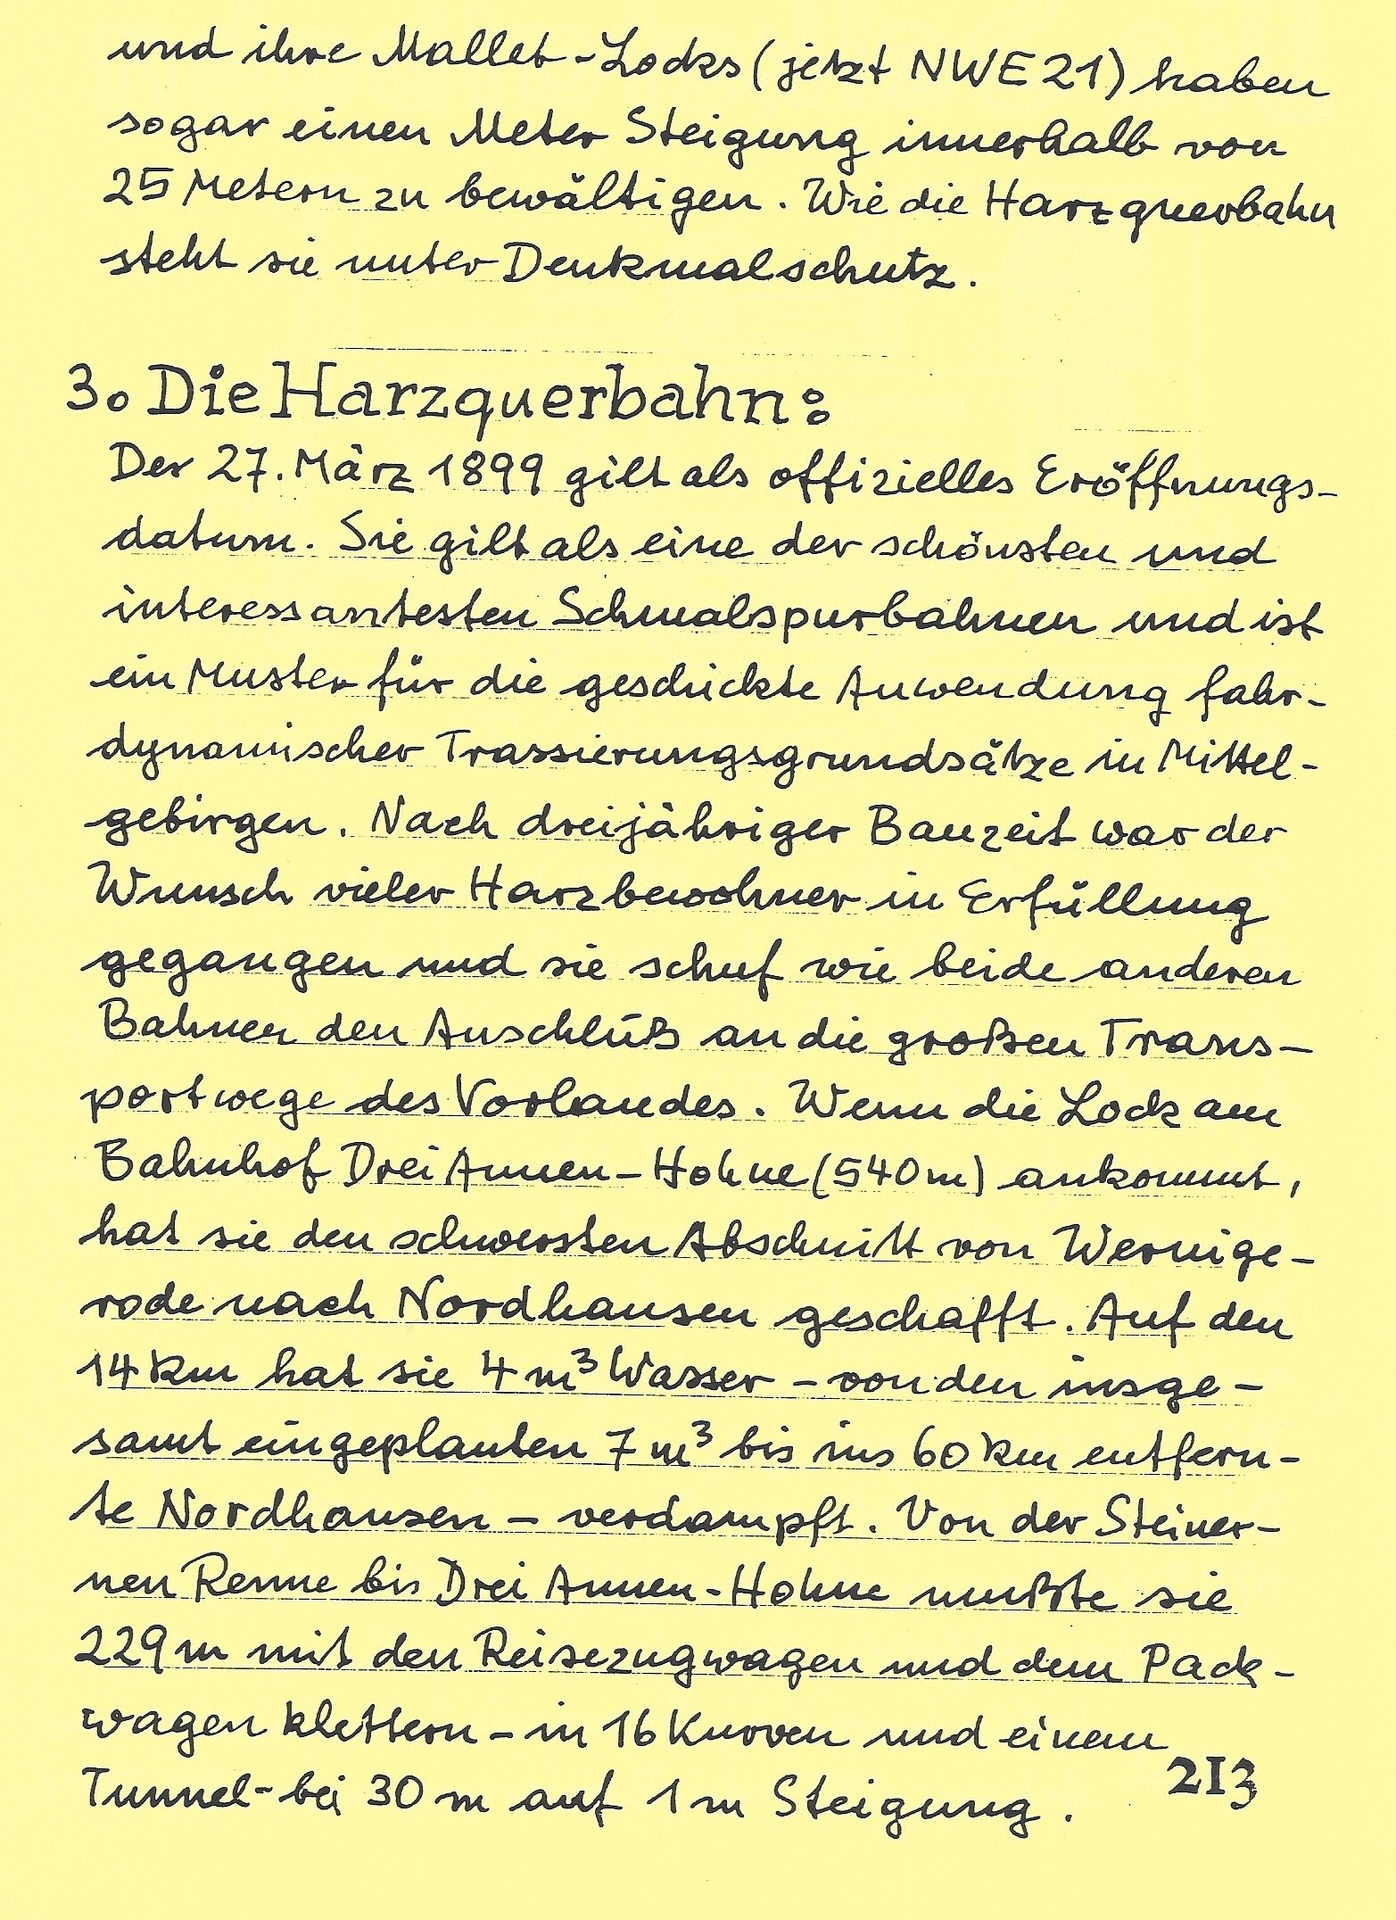 und ihre Mallet-Locks (jetzt NWE 21) haben
sogar einen Meter Steigung innerhalb von
25 Metern zu bewältigen. Wie die Harzquerbahn
steht sie unter Denkmalschutz.
3. Die Harzquerbahn:
Der 27. März 1899 gilt als offizielles Eröffnungs-
datum. Sie gilt als eine der schönsten und
interessantesten Schmalspurbahnen und ist
ein Muster für die geschickte Anwendung fahr-
dynamischer Trassierungsgrundsätze in Mittel-
gebirgen. Nach dreijähriger Bauzeit war der
Wunsch vieler Harzbewohner in Erfüllung
gegangen und sie schuf wie beide anderen
Bahnen den Anschluß an die großen Trans-
portwege des Vorlandes. Wenn die Lock am
Bahnhof Drei Annen-Hohne (540 m) ankommt,
hat sie den schwersten Abschnitt von Wernige-
rode nach Nordhausen geschafft. Auf den
14 km hat sie 4 m³ Wasser - von den insge-
samt eingeplanten 7 m³ bis ins 60 km entfern-
te Nordhausen - verdampft. Von der Steiner-
nen Renne bis Drei Annen-Hohne mußte sie
229 m mit den Reisezugwagen und dem Pack-
wagen klettern - in 16 Kurven und einem
Tunnel - bei 30 m auf 1 m Steigung.
213